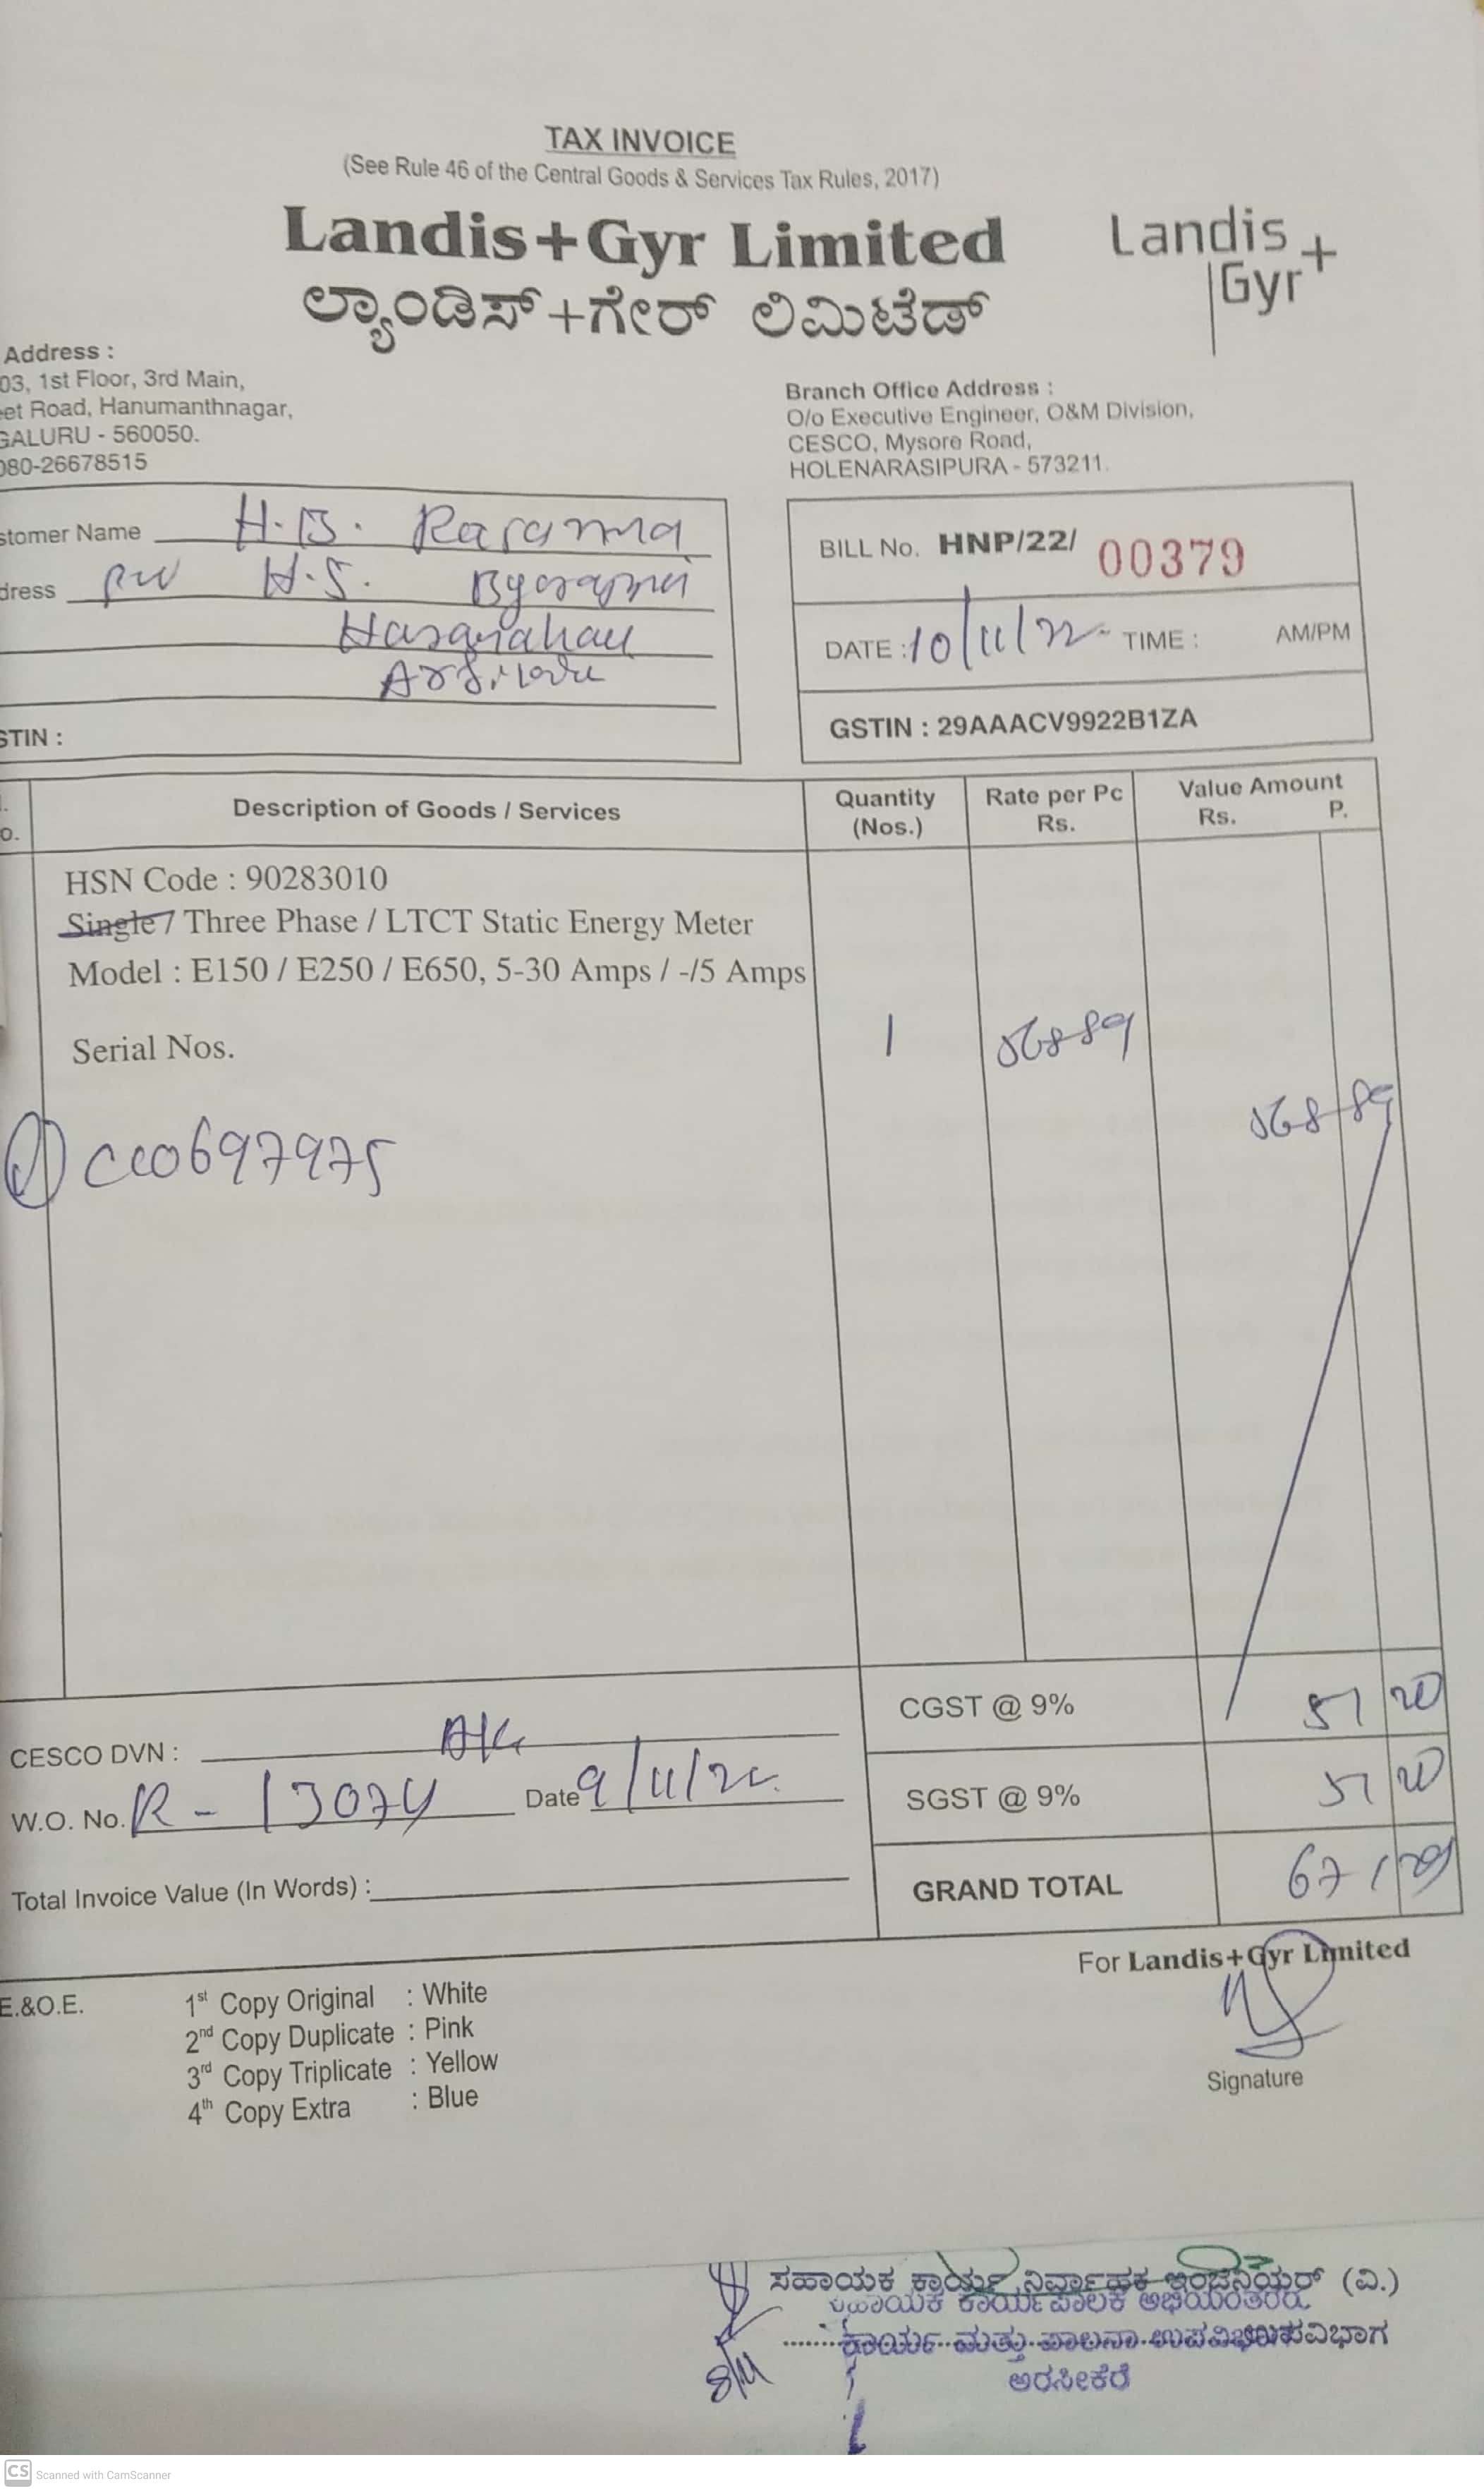 TAX INVOICE
(See Rule 46 of the Central Goods & Services Tax Rules, 2017)
Landis+Gyr Limited
ಲ್ಯಾಂಡಿಸ್+ಗೇರ್ ಲಿಮಿಟೆಡ್
Landis+
Gyr
Address :
03, 1st Floor, 3rd Main,
eet Road, Hanumanthnagar,
GALURU - 560050.
080-26678515
Branch Office Address :
O/o Executive Engineer, O&M Division,
CESCO, Mysore Road,
HOLENARASIPURA - 573211.
stomer Name H.B.
dress H.S.
STIN :
BILL No. HNP/22/ 00379
DATE : 10/11/22 TIME : AM/PM
GSTIN : 29AAACV9922B1ZA
Description of Goods / Services
Quantity (Nos.)
Rate per Pc Rs.
Value Amount Rs. P.
HSN Code : 90283010
Single / Three Phase / LTCT Static Energy Meter
Model : E150 / E250 / E650, 5-30 Amps / -/5 Amps
Serial Nos. 1 568-89
568-89
1
CGST @ 9% 51 20
SGST @ 9% 51 20
GRAND TOTAL 671 29
CESCO DVN :
W.O. No. R-13074 Date 9/11/22
Total Invoice Value (In Words) :
For Landis+Gyr Limited
Signature
E.&O.E.
1st Copy Original : White
2nd Copy Duplicate : Pink
3rd Copy Triplicate : Yellow
4th Copy Extra : Blue
ಸಹಾಯಕ ಕಾರ್ಯನಿರ್ವಾಹಕ ಇಂಜಿನಿಯರ್ (ವಿ.)
ಸಹಾಯಕ ಕಾರ್ಯಪಾಲಕ ಅಭಿಯಂತರರು
ಕಾರ್ಯ ಮತ್ತು ಪಾಲನಾ ಉಪವಿಭಾಗ
ಅರಸೀಕೆರೆ
CS Scanned with CamScanner